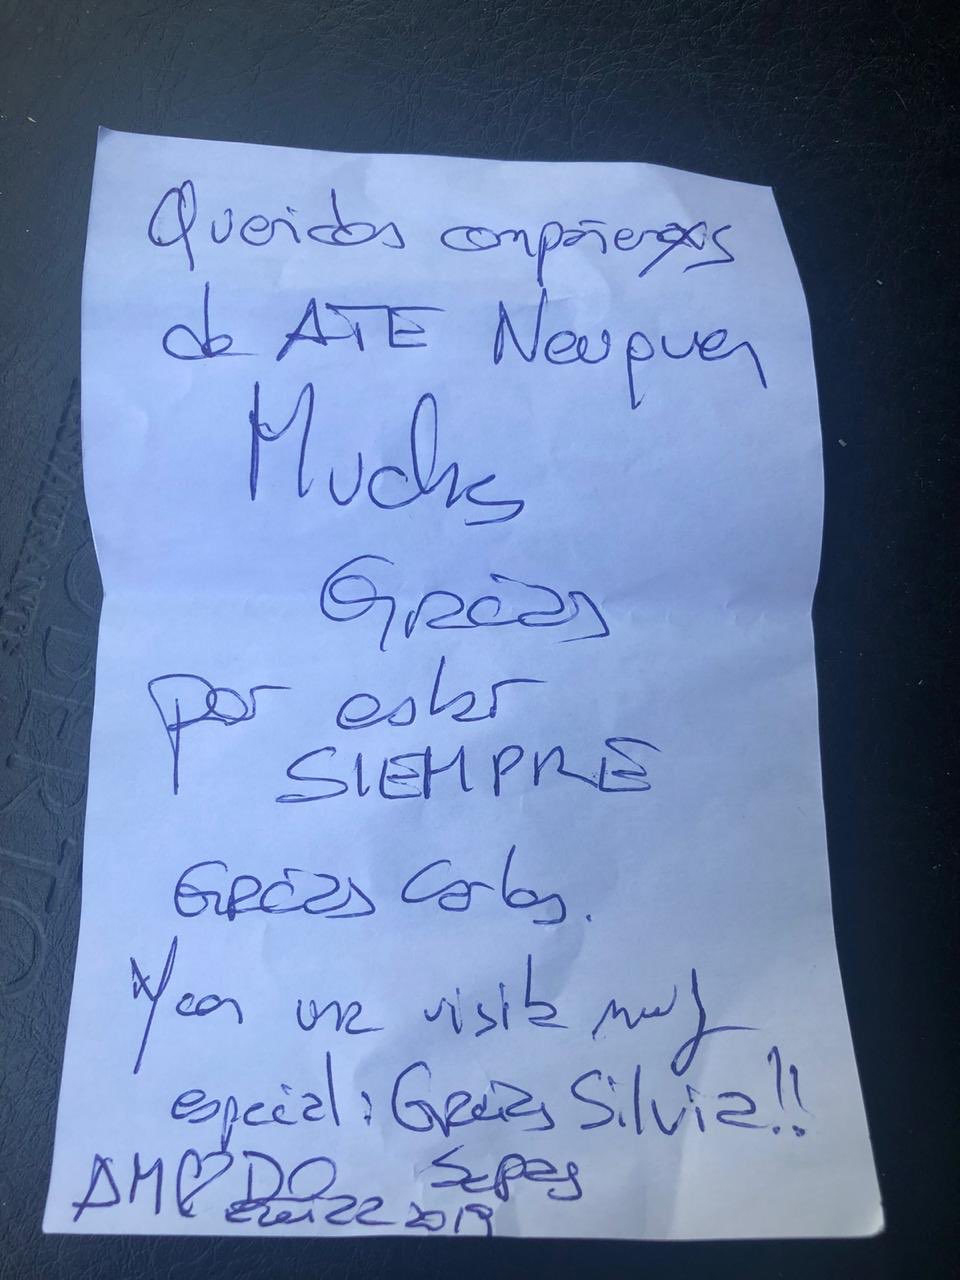 Queridos compañerxs
de ATE Neuquen
Muchas
Gracias
por estar
SIEMPRE
Gracias Carlos.
Y con una visita muy
especial: Gracias Silvia!!
AM♡DO
2019